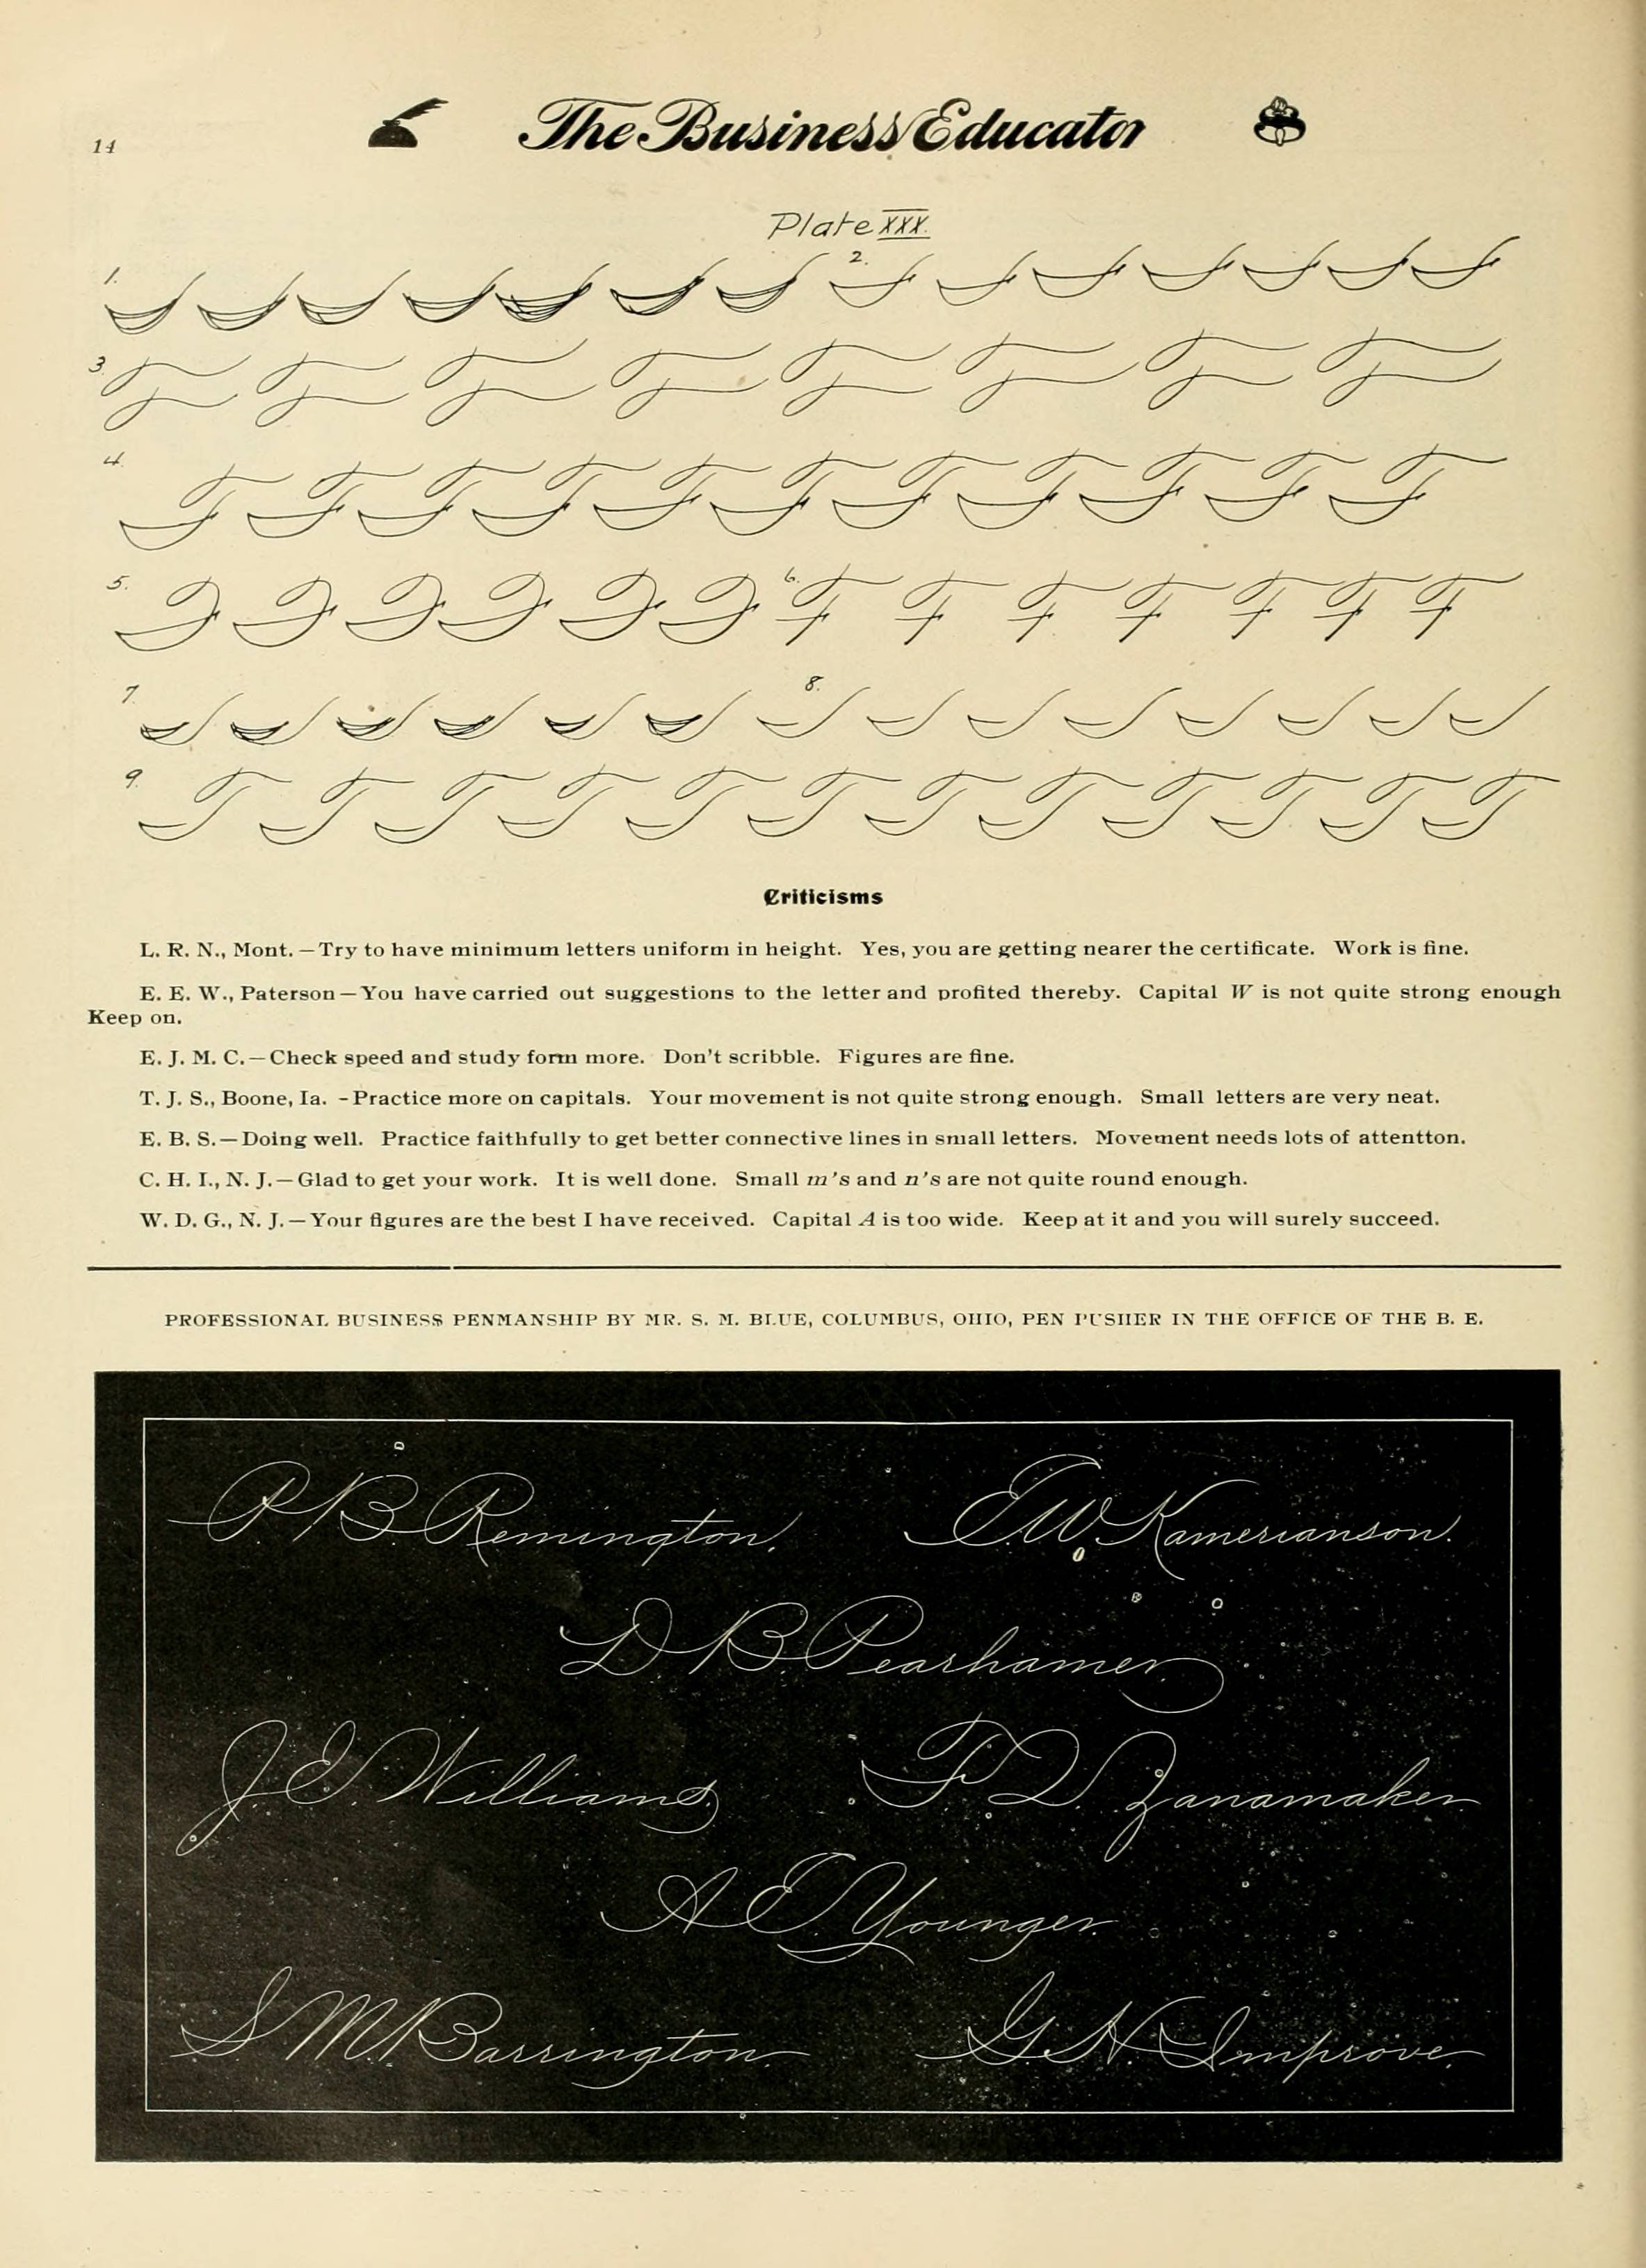 14
The Business Educator
Plate XXX.
1. 2.
3.
4.
5. 6.
7. 8.
9.
Criticisms
L. R. N., Mont. — Try to have minimum letters uniform in height. Yes, you are getting nearer the certificate. Work is fine.
E. E. W., Paterson — You have carried out suggestions to the letter and profited thereby. Capital W is not quite strong enough
Keep on.
E. J. M. C. — Check speed and study form more. Don't scribble. Figures are fine.
T. J. S., Boone, Ia. - Practice more on capitals. Your movement is not quite strong enough. Small letters are very neat.
E. B. S. — Doing well. Practice faithfully to get better connective lines in small letters. Movement needs lots of attentton.
C. H. I., N. J. — Glad to get your work. It is well done. Small m's and n's are not quite round enough.
W. D. G., N. J. — Your figures are the best I have received. Capital A is too wide. Keep at it and you will surely succeed.
PROFESSIONAL BUSINESS PENMANSHIP BY MR. S. M. BLUE, COLUMBUS, OHIO, PEN PUSHER IN THE OFFICE OF THE B. E.
P. B. Remington. E. W. Kamerianson.
D. B. Pearhamer
J. E. Williams F. D. Zanamaker
A. E. Younger.
S. M. Barrington. G. H. Improve.